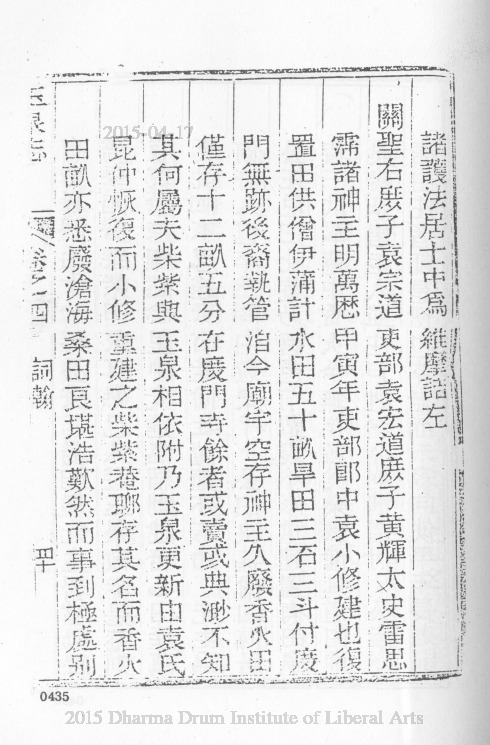 諸護法居士中爲維摩詰左
關聖右庶子袁宗道吏部袁宏道庶子黃輝太史雷思
霈諸神主明萬歷甲寅年吏部郎中袁小修建也復
置田供僧伊蒲計水田五十畝旱田三石三斗付度
門無跡後裔執管洎今廟宇空存神主久廢香火田
僅存十二畝五分在度門寺餘者或賣或典渺不知
其何屬夫柴紫與玉泉相依附乃玉泉更新由袁氏
昆仲恢復而小修重建之柴紫菴聊存其名而香火
田畝亦悉廢滄海桑田良堪浩歎然而事到極處别
玉泉志
卷之四
詞翰
四十
2015-04-17
0435
2015 Dharma Drum Institute of Liberal Arts